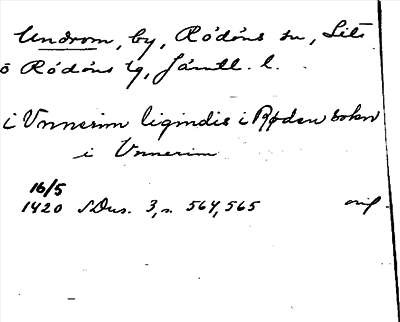 Undrom, by, Rödöns sn, Sit
o Rödöns tg, Jämtl. l.
i Vnnerim ligindis i Røden sokn
i Vnnerim
16/5
1420 SDns. 3, s. 564, 565 orig.